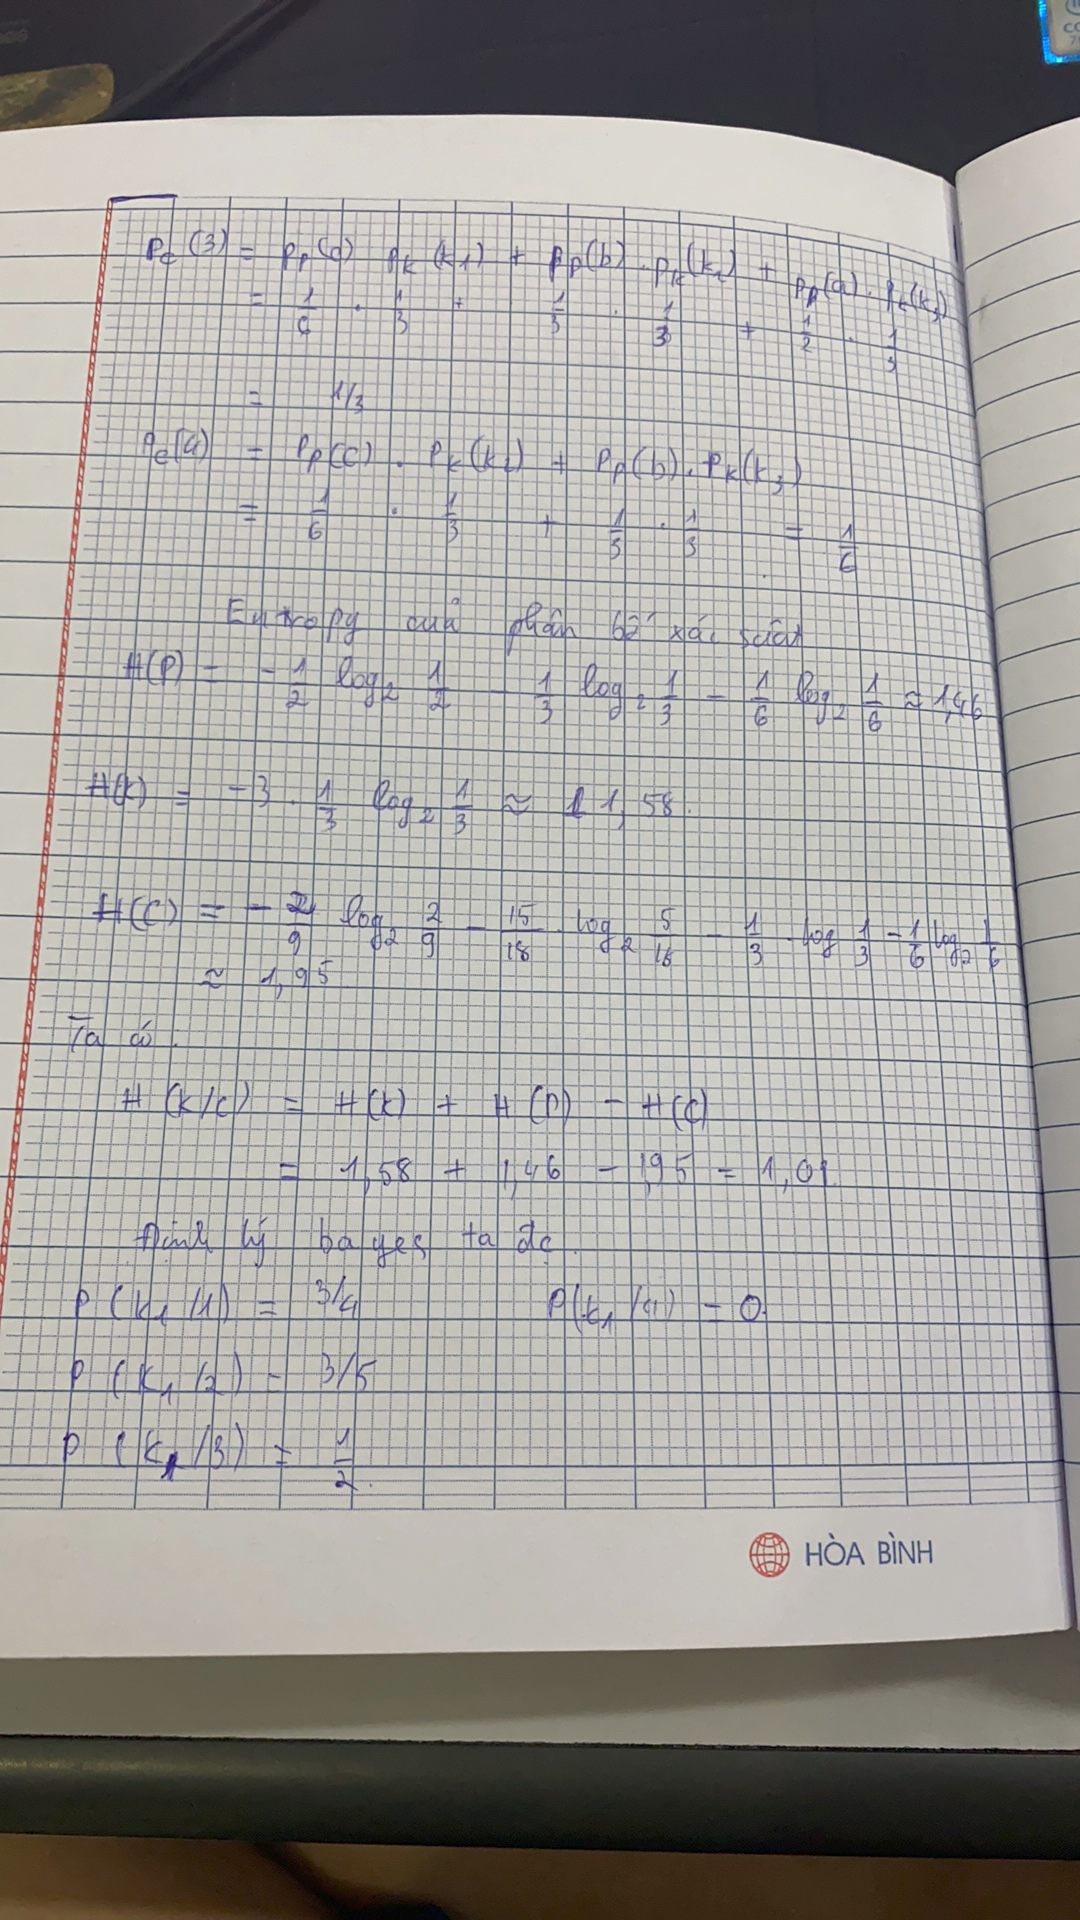 P_c(3) = P_p(c) P_k(k1) + P_p(b) . P_k(k2) + P_p(a) . P_k(k3)
= 1/6 . 1/3 + 1/3 . 1/3 + 1/2 . 1/3
= 1/3
P_c(4) = P_p(c) . P_k(k2) + P_p(b) . P_k(k3)
= 1/6 . 1/3 + 1/3 . 1/3 = 1/6
Entropy của phân bố xác suất
H(P) = - 1/2 log2 1/2 - 1/3 log2 1/3 - 1/6 log2 1/6 ≈ 1,46
H(K) = -3 . 1/3 log2 1/3 ≈ 1,58.
H(C) = - 2/9 log2 2/9 - 15/18 log2 5/18 - 1/3 log 1/3 - 1/6 log2 1/6
≈ 1,95
Ta có.
H(K/C) = H(K) + H(P) - H(C)
= 1,58 + 1,46 - 1,95 = 1,09
Định lý bayes ta đc
P(K1/1) = 3/4 P(K1/4) = 0
P(K1/2) = 3/5
P(K1/3) = 1/2.
HÒA BÌNH